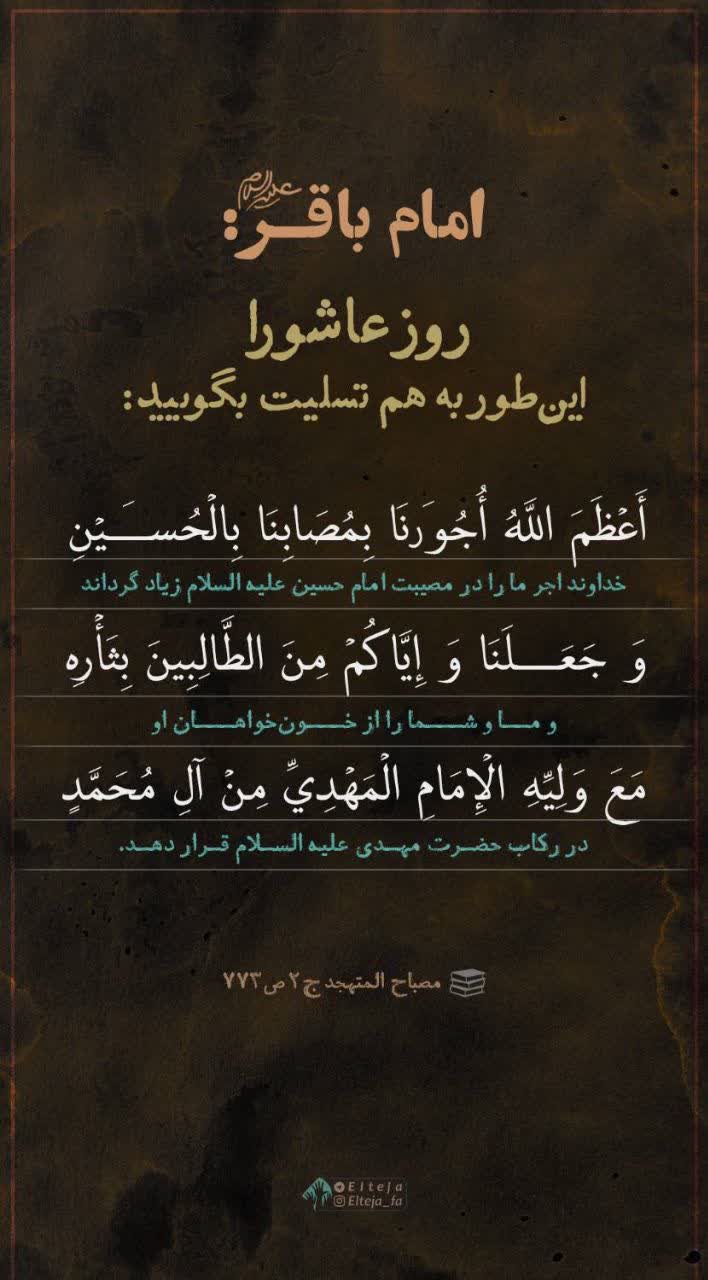 امام باقر علیه‌السلام:
روز عاشورا
این‌طور به هم تسلیت بگویید:
أَعْظَمَ اللَّهُ أُجُورَنَا بِمُصَابِنَا بِالْحُسَــيْنِ
خداوند اجر ما را در مصیبت امام حسین علیه السلام زیاد گرداند
وَ جَعَــلَنَا وَ إِيَّاكُمْ مِنَ الطَّالِبِينَ بِثَأْرِهِ
و مـا و شـما را از خـون‌خواهـان او
مَعَ وَلِيِّهِ الْإِمَامِ الْمَهْدِيِّ مِنْ آلِ مُحَمَّدٍ
در رکاب حضـرت مهـدی علیه السـلام قـرار دهـد.
مصباح المتهجد ج۲ ص۷۷۳
Elteja
Elteja_fa